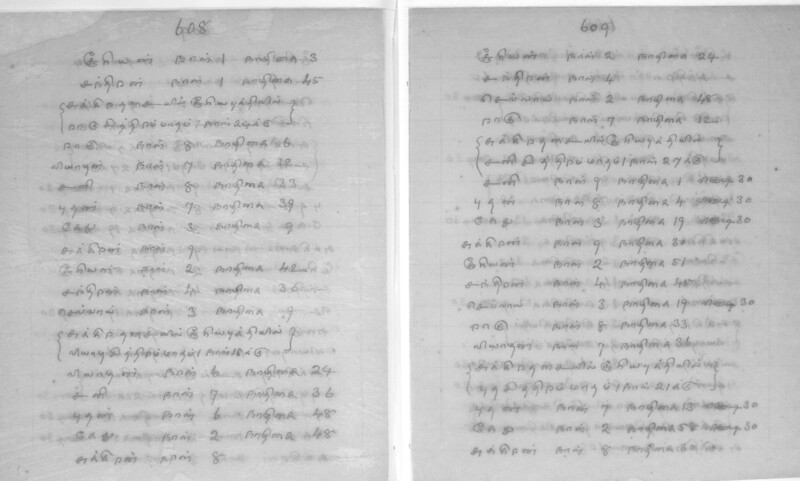 608
சூரியன் நாள் 1 நாழிகை 3
சந்திரன் நாள் 1 நாழிகை 45
சுக்கிரதசையில் சூரியபுத்தியில்
ராகு நாள் 8 நாழிகை 6
வியாழன் நாள் 7 நாழிகை 12
சனி நாள் 8 நாழிகை 33
புதன் நாள் 7 நாழிகை 39
கேது நாள் 3 நாழிகை 9
சுக்கிரன் நாள் 9
சூரியன் நாள் 2 நாழிகை 42
சந்திரன் நாள் 4 நாழிகை 36
செவ்வாய் நாள் 3 நாழிகை 9
சுக்கிரதசையில் சூரியபுத்தியில்
வியாழன் நாள் 6 நாழிகை 24
சனி நாள் 7 நாழிகை 36
புதன் நாள் 6 நாழிகை 48
கேது நாள் 2 நாழிகை 48
சுக்கிரன் நாள் 8
609
சூரியன் நாள் 2 நாழிகை 24
சந்திரன் நாள் 4
செவ்வாய் நாள் 2 நாழிகை 48
ராகு நாள் 7 நாழிகை 12
சுக்கிரதசையில் சூரியபுத்தியில்
சனி நாள் 9 நாழிகை 1 30
புதன் நாள் 8 நாழிகை 4 30
கேது நாள் 3 நாழிகை 19 30
சுக்கிரன் நாள் 9 நாழிகை 30
சூரியன் நாள் 2 நாழிகை 51
சந்திரன் நாள் 4 நாழிகை 45
செவ்வாய் நாள் 3 நாழிகை 19 30
ராகு நாள் 8 நாழிகை 33
வியாழன் நாள் 7 நாழிகை 36
சுக்கிரதசையில் சூரியபுத்தியில்
புதன் நாள் 7 நாழிகை 13 30
கேது நாள் 2 நாழிகை 58 30
சுக்கிரன் நாள் 8 நாழிகை